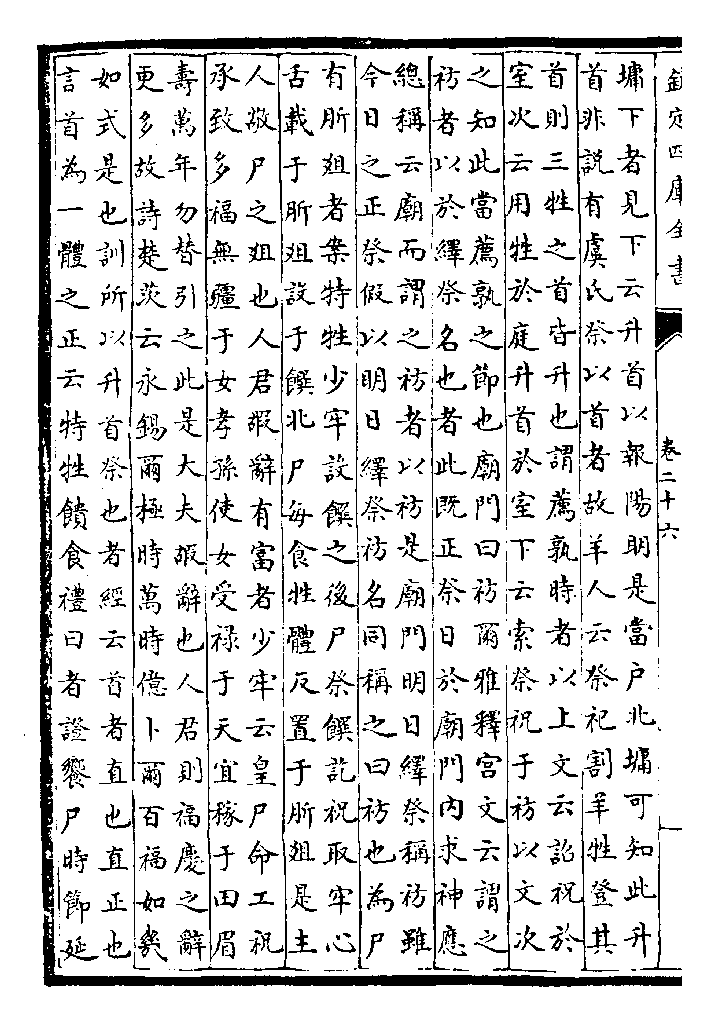 欽定四庫全書
卷二十六
墉下者見下云升首以報陽明是當户北墉可知此升
首非説有虞氏祭以首者故羊人云祭祀割羊牲登其
首則三牲之首皆升也謂薦孰時者以上文云詔祝於
室次云用牲於庭升首於室下云索祭祝于祊以文次
之知此當薦孰之節也廟門曰祊爾雅釋宮文云謂之
祊者以於繹祭名也者此既正祭日於廟門内求神應
總稱云廟而謂之祊者以祊是廟門明日繹祭稱祊雖
今日之正祭假以明日繹祭祊名同稱之曰祊也為尸
有肵俎者案特牲少牢設饌之後尸祭饌訖祝取牢心
舌載于肵俎設于饌北尸每食牲體反置于肵俎是主
人敬尸之俎也人君嘏辭有富者少牢云皇尸命工祝
承致多福無疆于女孝孫使女受禄于天宜稼于田眉
壽萬年勿替引之此是大夫嘏辭也人君則福慶之辭
更多故詩楚茨云永錫爾極時萬時億卜爾百福如㡬
如式是也訓所以升首祭也者經云首者直也直正也
言首為一體之正云特牲饋食禮曰者證饗尸時節延